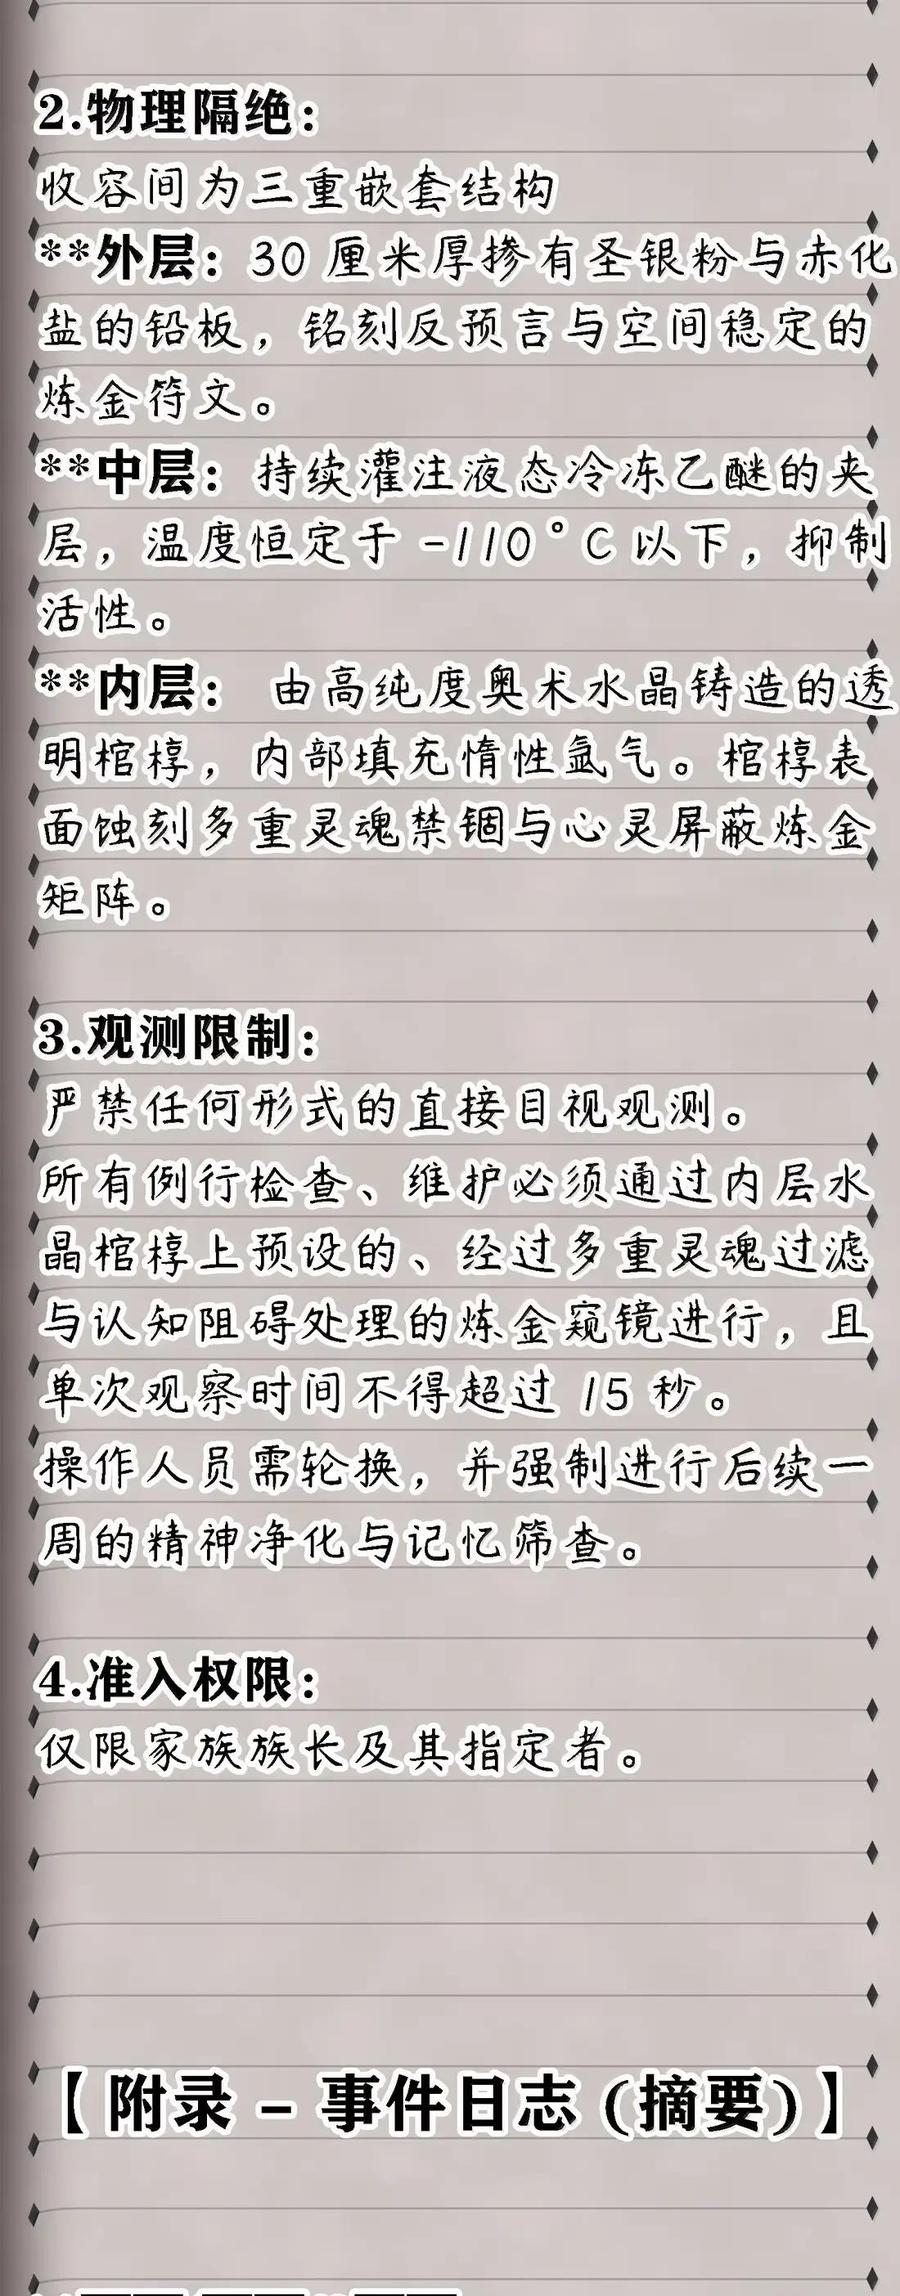 2.物理隔绝：
收容间为三重嵌套结构
**外层：30 厘米厚掺有圣银粉与赤化
盐的铅板，铭刻反预言与空间稳定的
炼金符文。
**中层：持续灌注液态冷冻乙醚的夹
层，温度恒定于 -110°C 以下，抑制
活性。
**内层： 由高纯度奥术水晶铸造的透
明棺椁，内部填充惰性氩气。棺椁表
面蚀刻多重灵魂禁锢与心灵屏蔽炼金
矩阵。
3.观测限制：
严禁任何形式的直接目视观测。
所有例行检查、维护必须通过内层水
晶棺椁上预设的、经过多重灵魂过滤
与认知阻碍处理的炼金窥镜进行，且
单次观察时间不得超过 15 秒。
操作人员需轮换，并强制进行后续一
周的精神净化与记忆筛查。
4.准入权限：
仅限家族族长及其指定者。
【 附录 - 事件日志 (摘要) 】